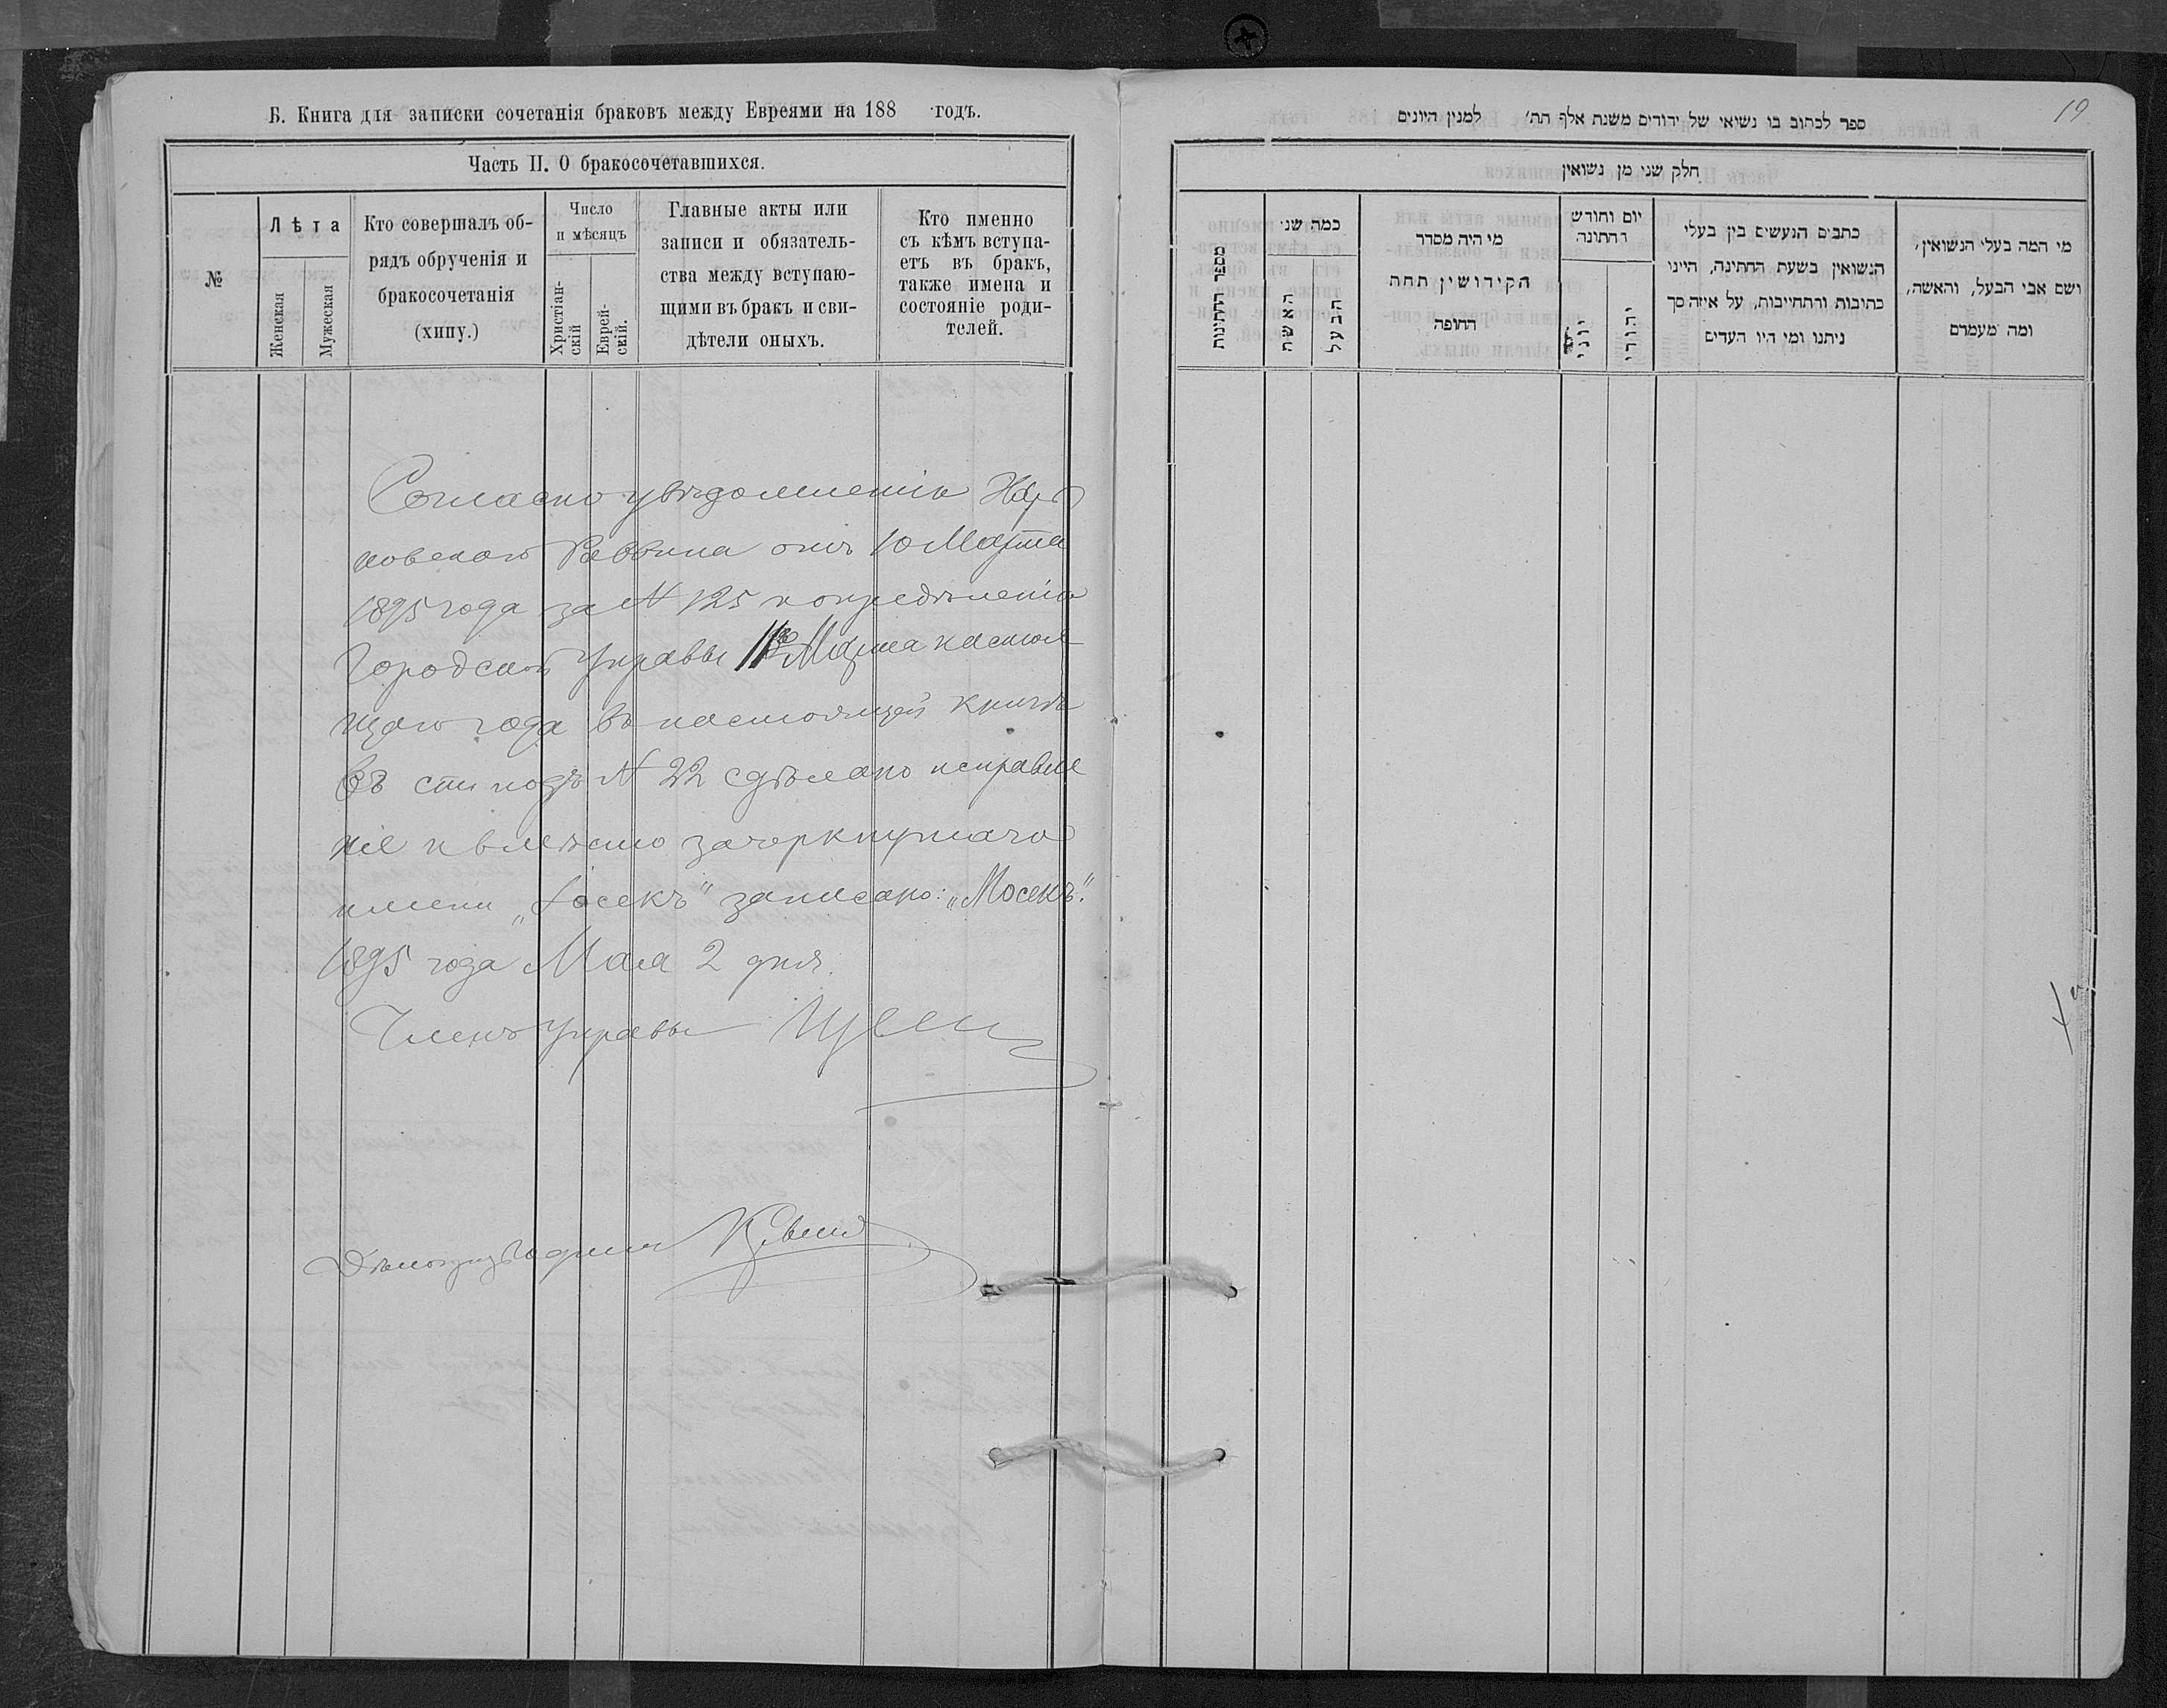 Б. Книга для записки сочетанія браковъ между Евреями на 188 годъ.
Часть II. О бракосочетавшихся.
№
Лѣта
Женская
Мужеская
Кто совершалъ об-
рядъ обрученія и
бракосочетанія
(хипу.)
Число
и мѣсяцъ
Христіан-
скій
Еврей-
скій.
Главные акты или
записи и обязатель-
ства между вступаю-
щими въ бракъ и сви-
дѣтели оныхъ.
Кто именно
съ кѣмъ вступа-
етъ въ бракъ,
также имена и
состояніе роди-
телей.
Согласно увѣдомленію
Раввина отъ 10 Марта
1895 года за № 125 и опредѣленію
Городской Управы Марта настоя
щаго года въ настоящей книгѣ
въ ст. подъ № 22 сдѣлано исправле
ніе и вмѣсто зачеркнутаго
имени „Іосекъ" записано: „Мосекъ".
1895 года Мая 2 дня.
Членъ Управы
Дѣлопроизводитель
19
ספר לכתוב בו נשואי של יהודים משנת אלף תת' למנין היונים
חלק שני מן נשואין
מי המה בעלי הנשואין,
ושם אבי הבעל, והאשה,
ומה מעמדם
כתבים הנעשים בין בעלי
הנשואין בשעת החתינה, היינו
כתיבות והתחייבות, על איזה סך
ניתנו ומי היו העדים
יום וחודש
החתונה
יהודי
יוני
מי היה מסדר
הקידושין תחת
החופה
כמה שני
הבעל
האשה
מספר החתינות